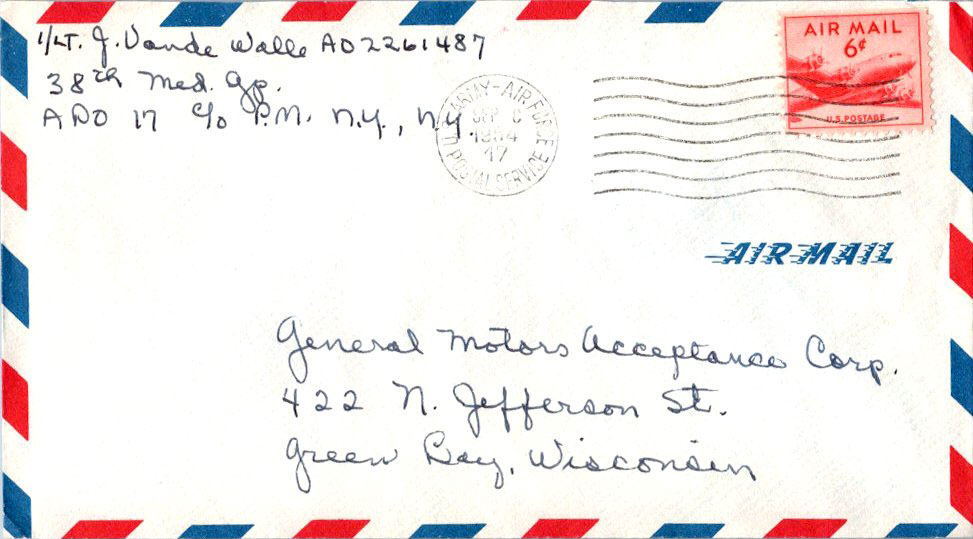 1/LT. J. Vande Walle AO2261487
38th Med. Gp.
APO 17 c/o P.M. N.Y., N.Y.
ARMY-AIR FORCE
SEP
1954
17
POSTAL SERVICE
AIR MAIL
6¢
U.S. POSTAGE
AIR MAIL
General Motors Acceptance Corp.
422 N. Jefferson St.
Green Bay, Wisconsin